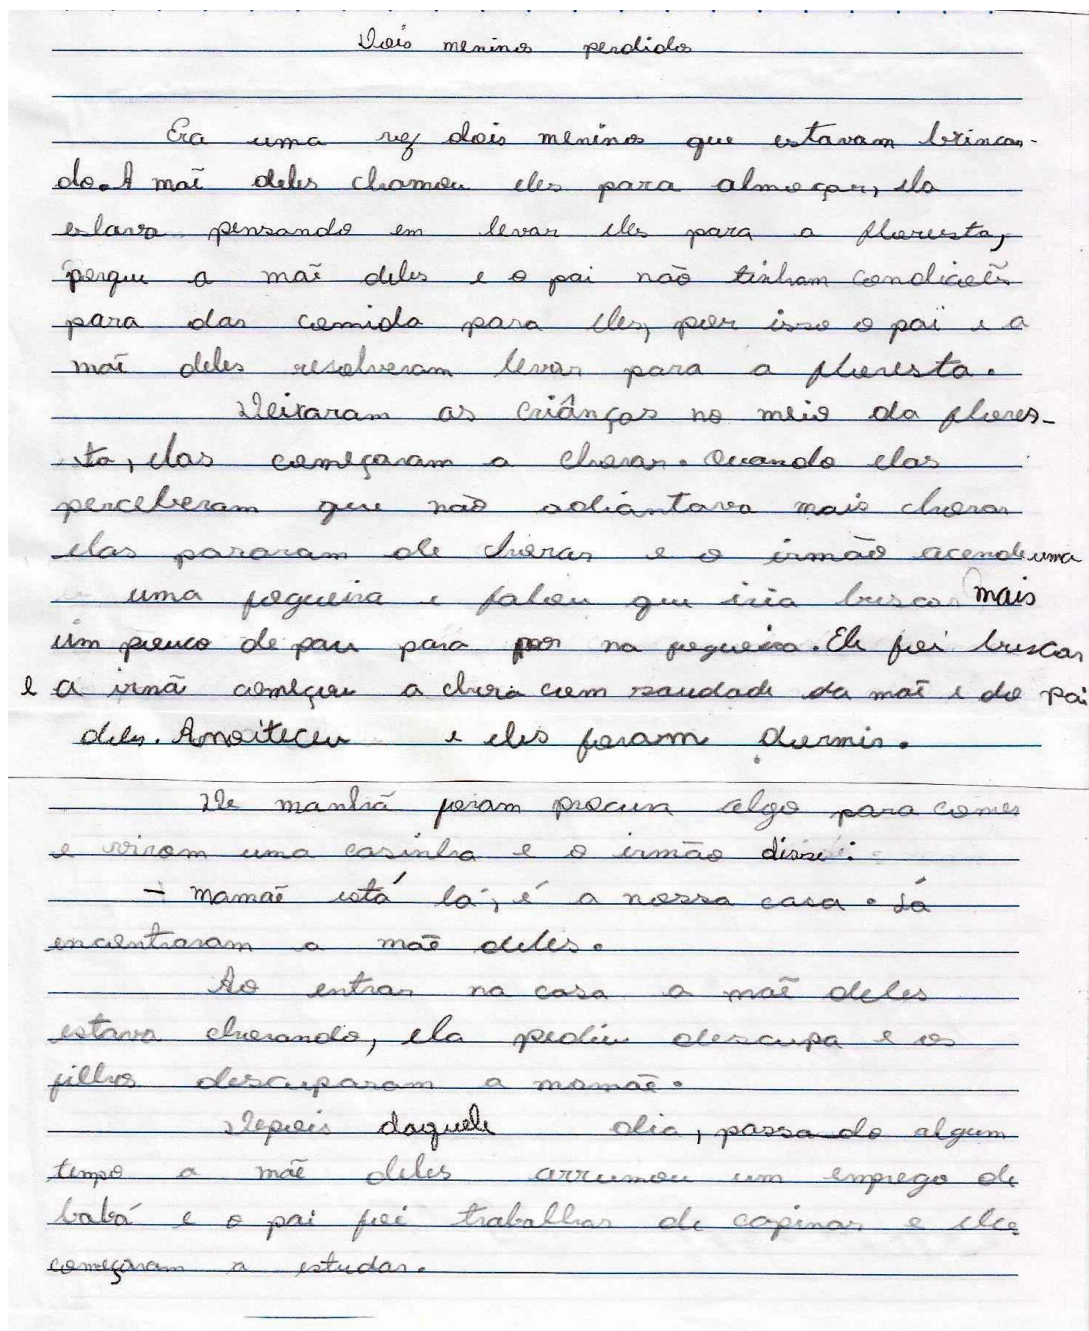 Dois meninos perdidos
Era uma vez dois meninos que estavam brincan-
do. A mãe deles chamou eles para almoçar, ela
estava pensando em levar eles para a floresta,
porque a mãe deles e o pai não tinham condicões
para dar comida para eles, por isso o pai e a
mãe deles resolveram levar para a floresta.
Deixaram as criânças no meio da flores-
ta, elas começaram a chorar. Quando elas
perceberam que não adiantava mais chorar
elas pararam de chorar e o irmão acende uma
uma fogueira e falou que iria buscar mais
um pouco de pau para por na fogueira. Ele foi buscar
e a irmã começou a chora com saudade da mãe e do pai
deles. Anoiteceu e eles foram dormir.
De manhã foram procura algo para comer
e viram uma casinha e o irmão disse:
- mamãe está lá, é a nossa casa. Lá
encontraram a mãe deles.
Ao entrar na casa a mãe deles
estava chorando, ela pediu descupa e os
filhos descuparam a mamãe.
Depois daquele dia, passando algum
tempo a mãe deles arrumou um emprego de
babá e o pai foi trabalhar de capinar e eles
começaram a estudar.